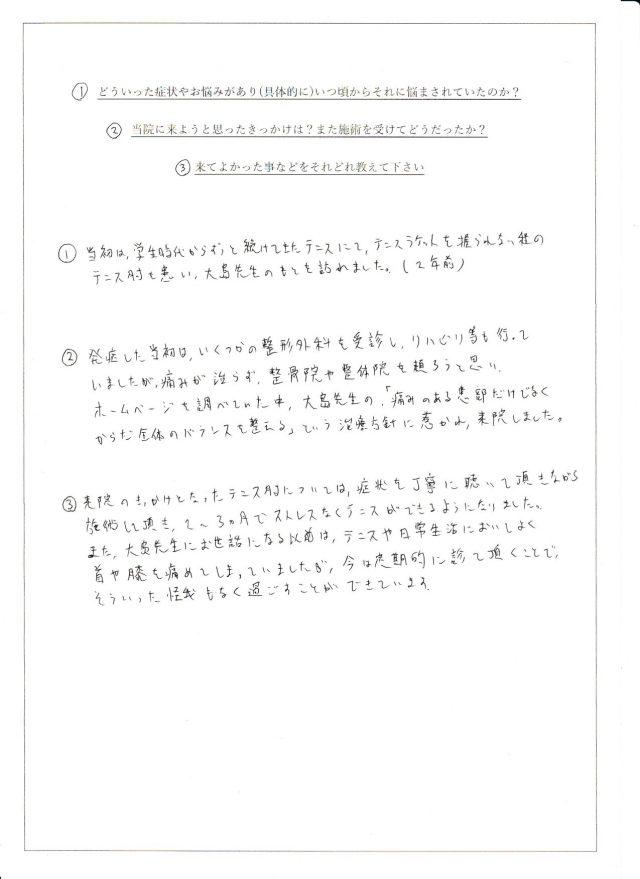 ① どういった症状やお悩みがあり(具体的に)いつ頃からそれに悩まされていたのか？
② 当院に来ようと思ったきっかけは？また施術を受けてどうだったか？
③ 来てよかった事などをそれどれ教えて下さい
① 当初は、学生時代からずっと続けてきたテニスにて、テニスラケットを握られない程の
テニス肘を患い、大島先生のもとを訪れました。(2年前)
② 発症した当初は、いくつかの整形外科を受診し、リハビリ等も行って
いましたが、痛みが治らず、整骨院や整体院を頼ろうと思い、
ホームページを調べていた中、大島先生の、「痛みのある患部だけでなく
からだ全体のバランスを整える」という治療方針に惹かれ、来院しました。
③ 来院のきっかけとなったテニス肘については、症状を丁寧に聴いて頂きながら
施術して頂き、2〜3ヵ月でストレスなくテニスができるようになりました。
また、大島先生にお世話になる以前は、テニスや日常生活においてよく
首や膝を痛めてしまっていましたが、今は定期的に診て頂くことで、
そういった怪我もなく過ごすことができています。